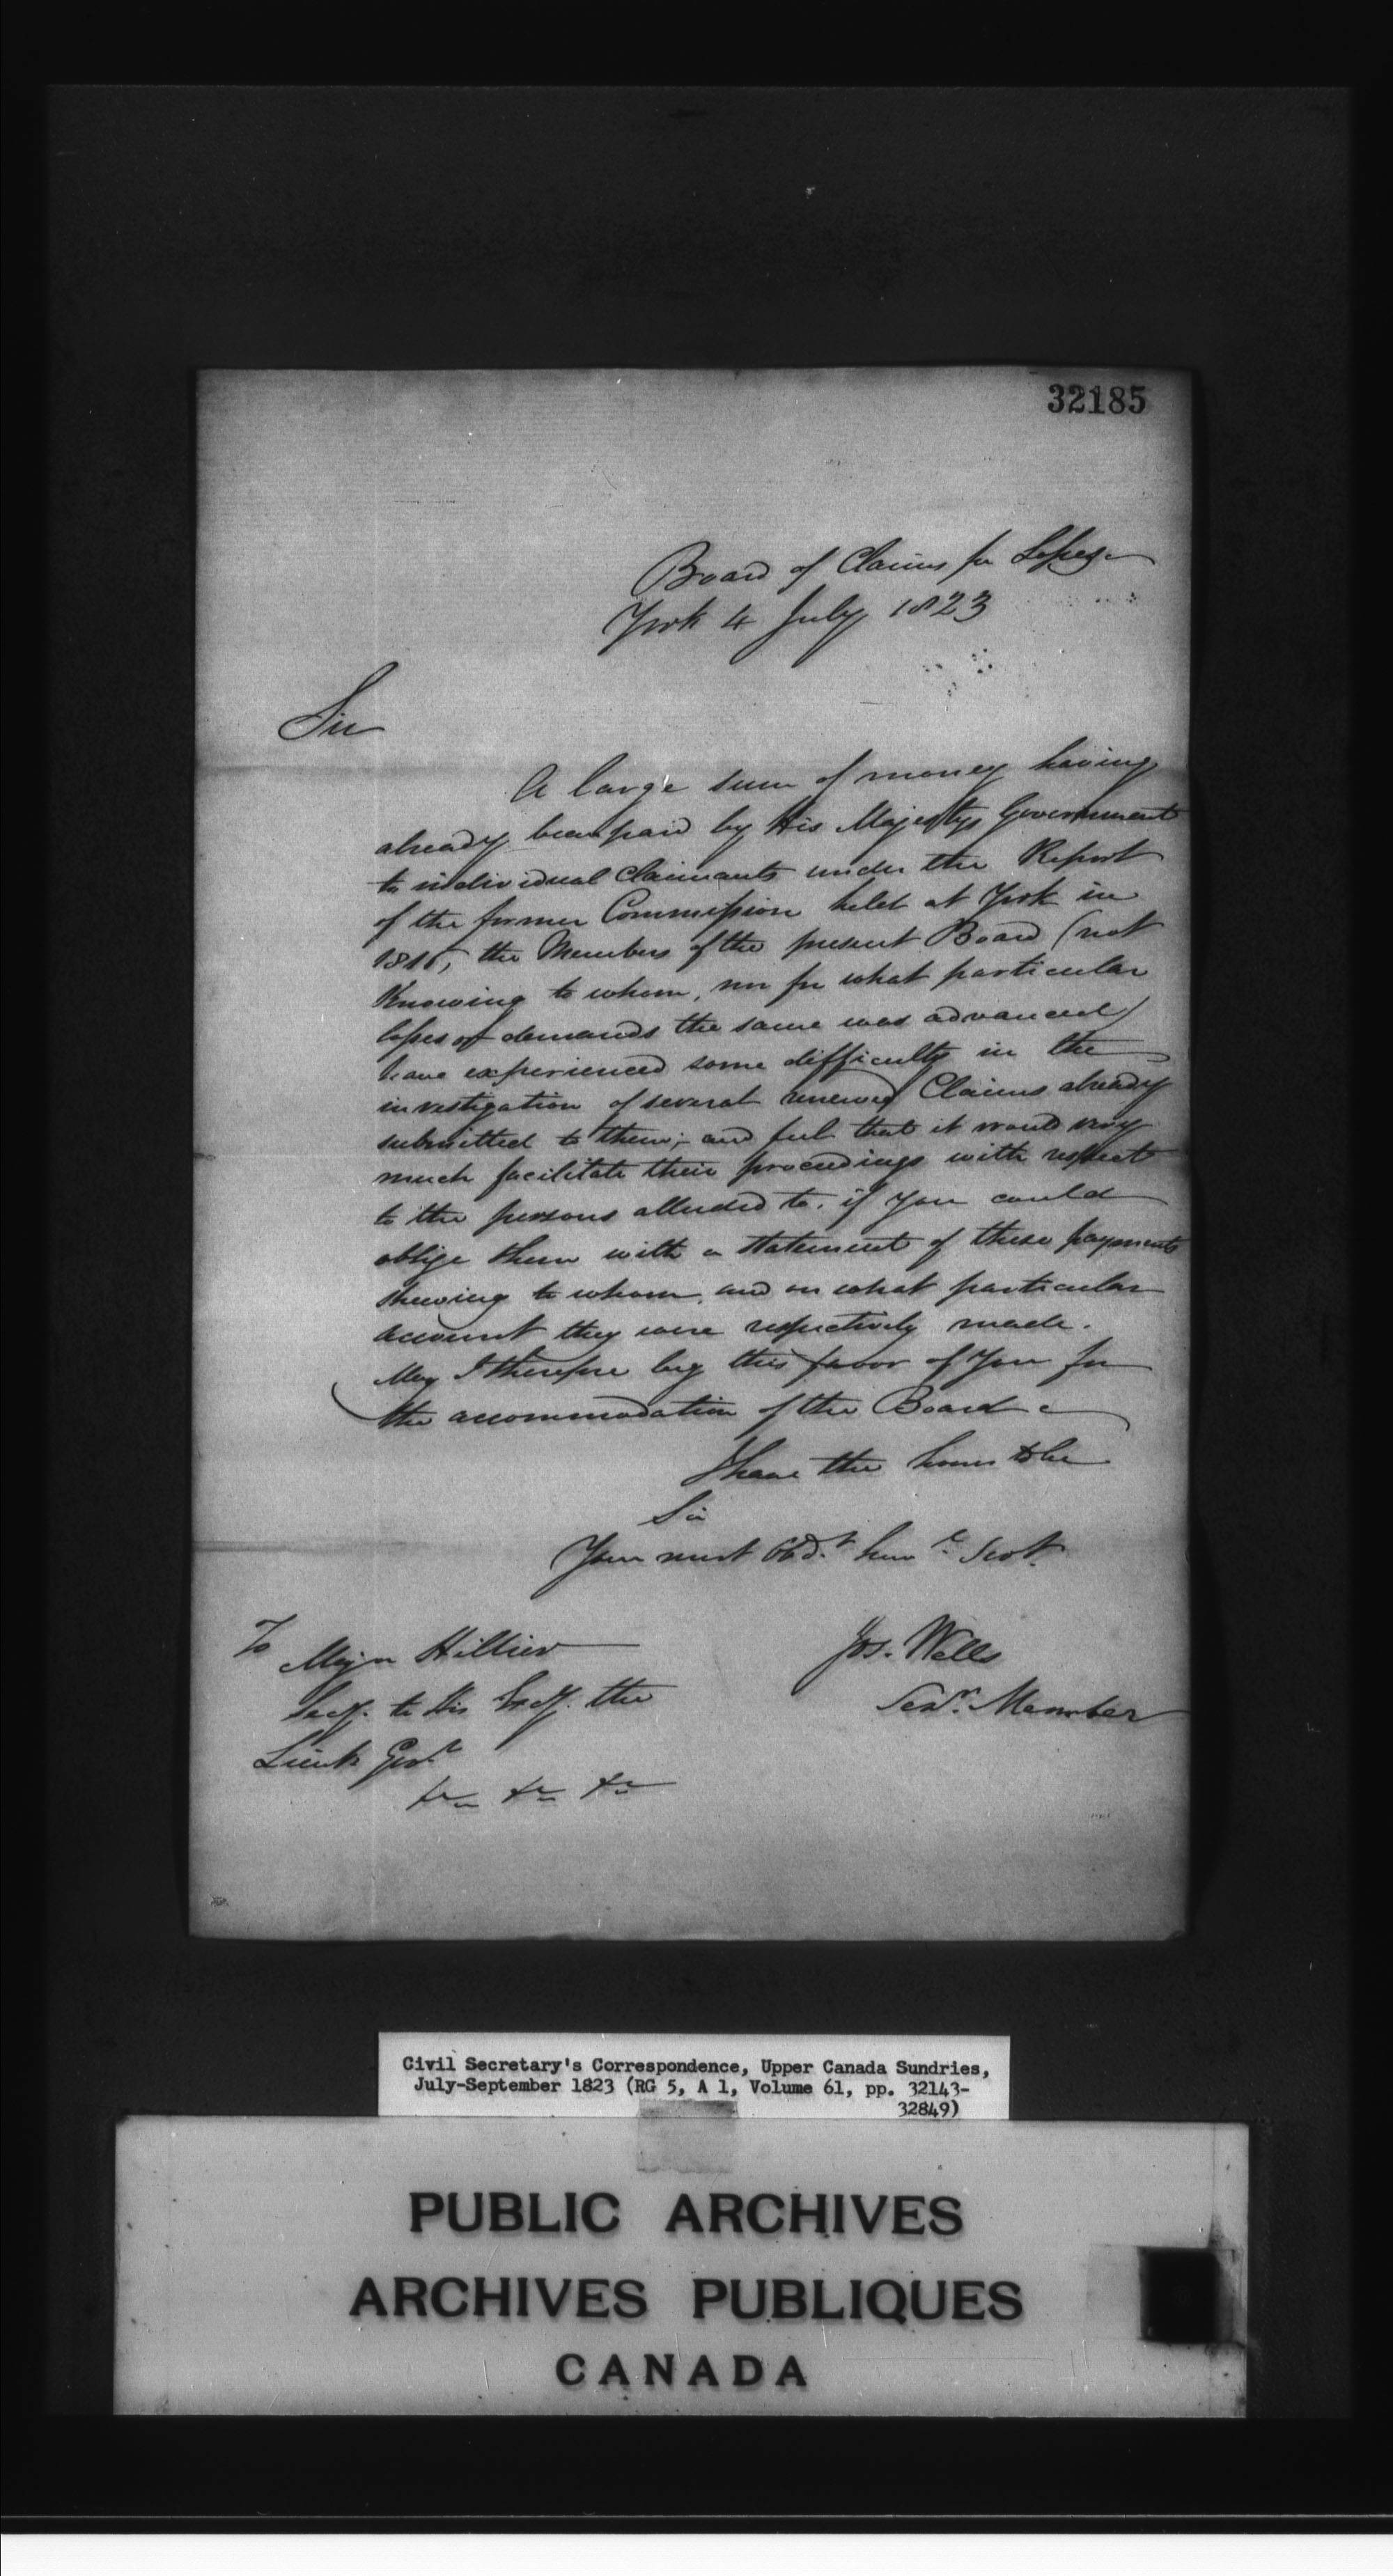 32185
Board of Claims for Losses
York 4 July 1823
Sir
A large sum of money having
already been paid by His Majestys Government
to individual Claimants under the Report
of the former Commission held at York in
the Members of the present Board (not
Knowing to whom, nor for what particular
losses or demands the same was advanced)
have experienced some difficulty in the
investigation of several renewed Claims already
submitted to them; and feel that it would very
much facilitate their proceedings with respect
to the persons alluded to, if you could
oblige them with a statement of these payments
shewing to whom, and on what particular
account they were respectively made.
May I therefore beg this favor of You for
the accommodation of the Board
I have the honor to be
Sir
Your most Obdt. humle. Servt.
Jos. Wells
Senr. Member
To Major Hillier
Secy. to His Excy. the
Lieut Govr
&c &c &c
Civil Secretary's Correspondence, Upper Canada Sundries,
July-September 1823 (RG 5, A 1, Volume 61, pp. 32143-
32849)
PUBLIC ARCHIVES
ARCHIVES PUBLIQUES
CANADA